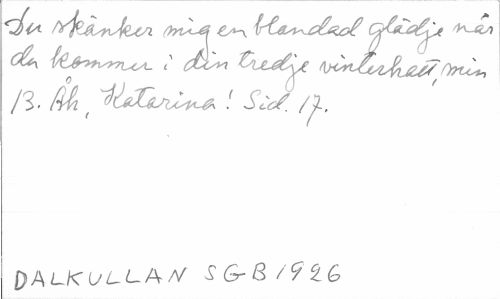 Du skänker mig en blandad glädje när
du kommer i din tredje vinterhatt, min
13. Åh, Katarina! Sid. 17.
DALKULLAN SGB 1926